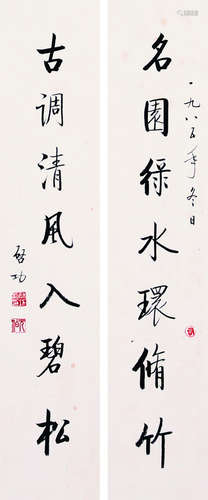 名園綠水環脩竹
一九八三年冬日
古調清風入碧松
啓功